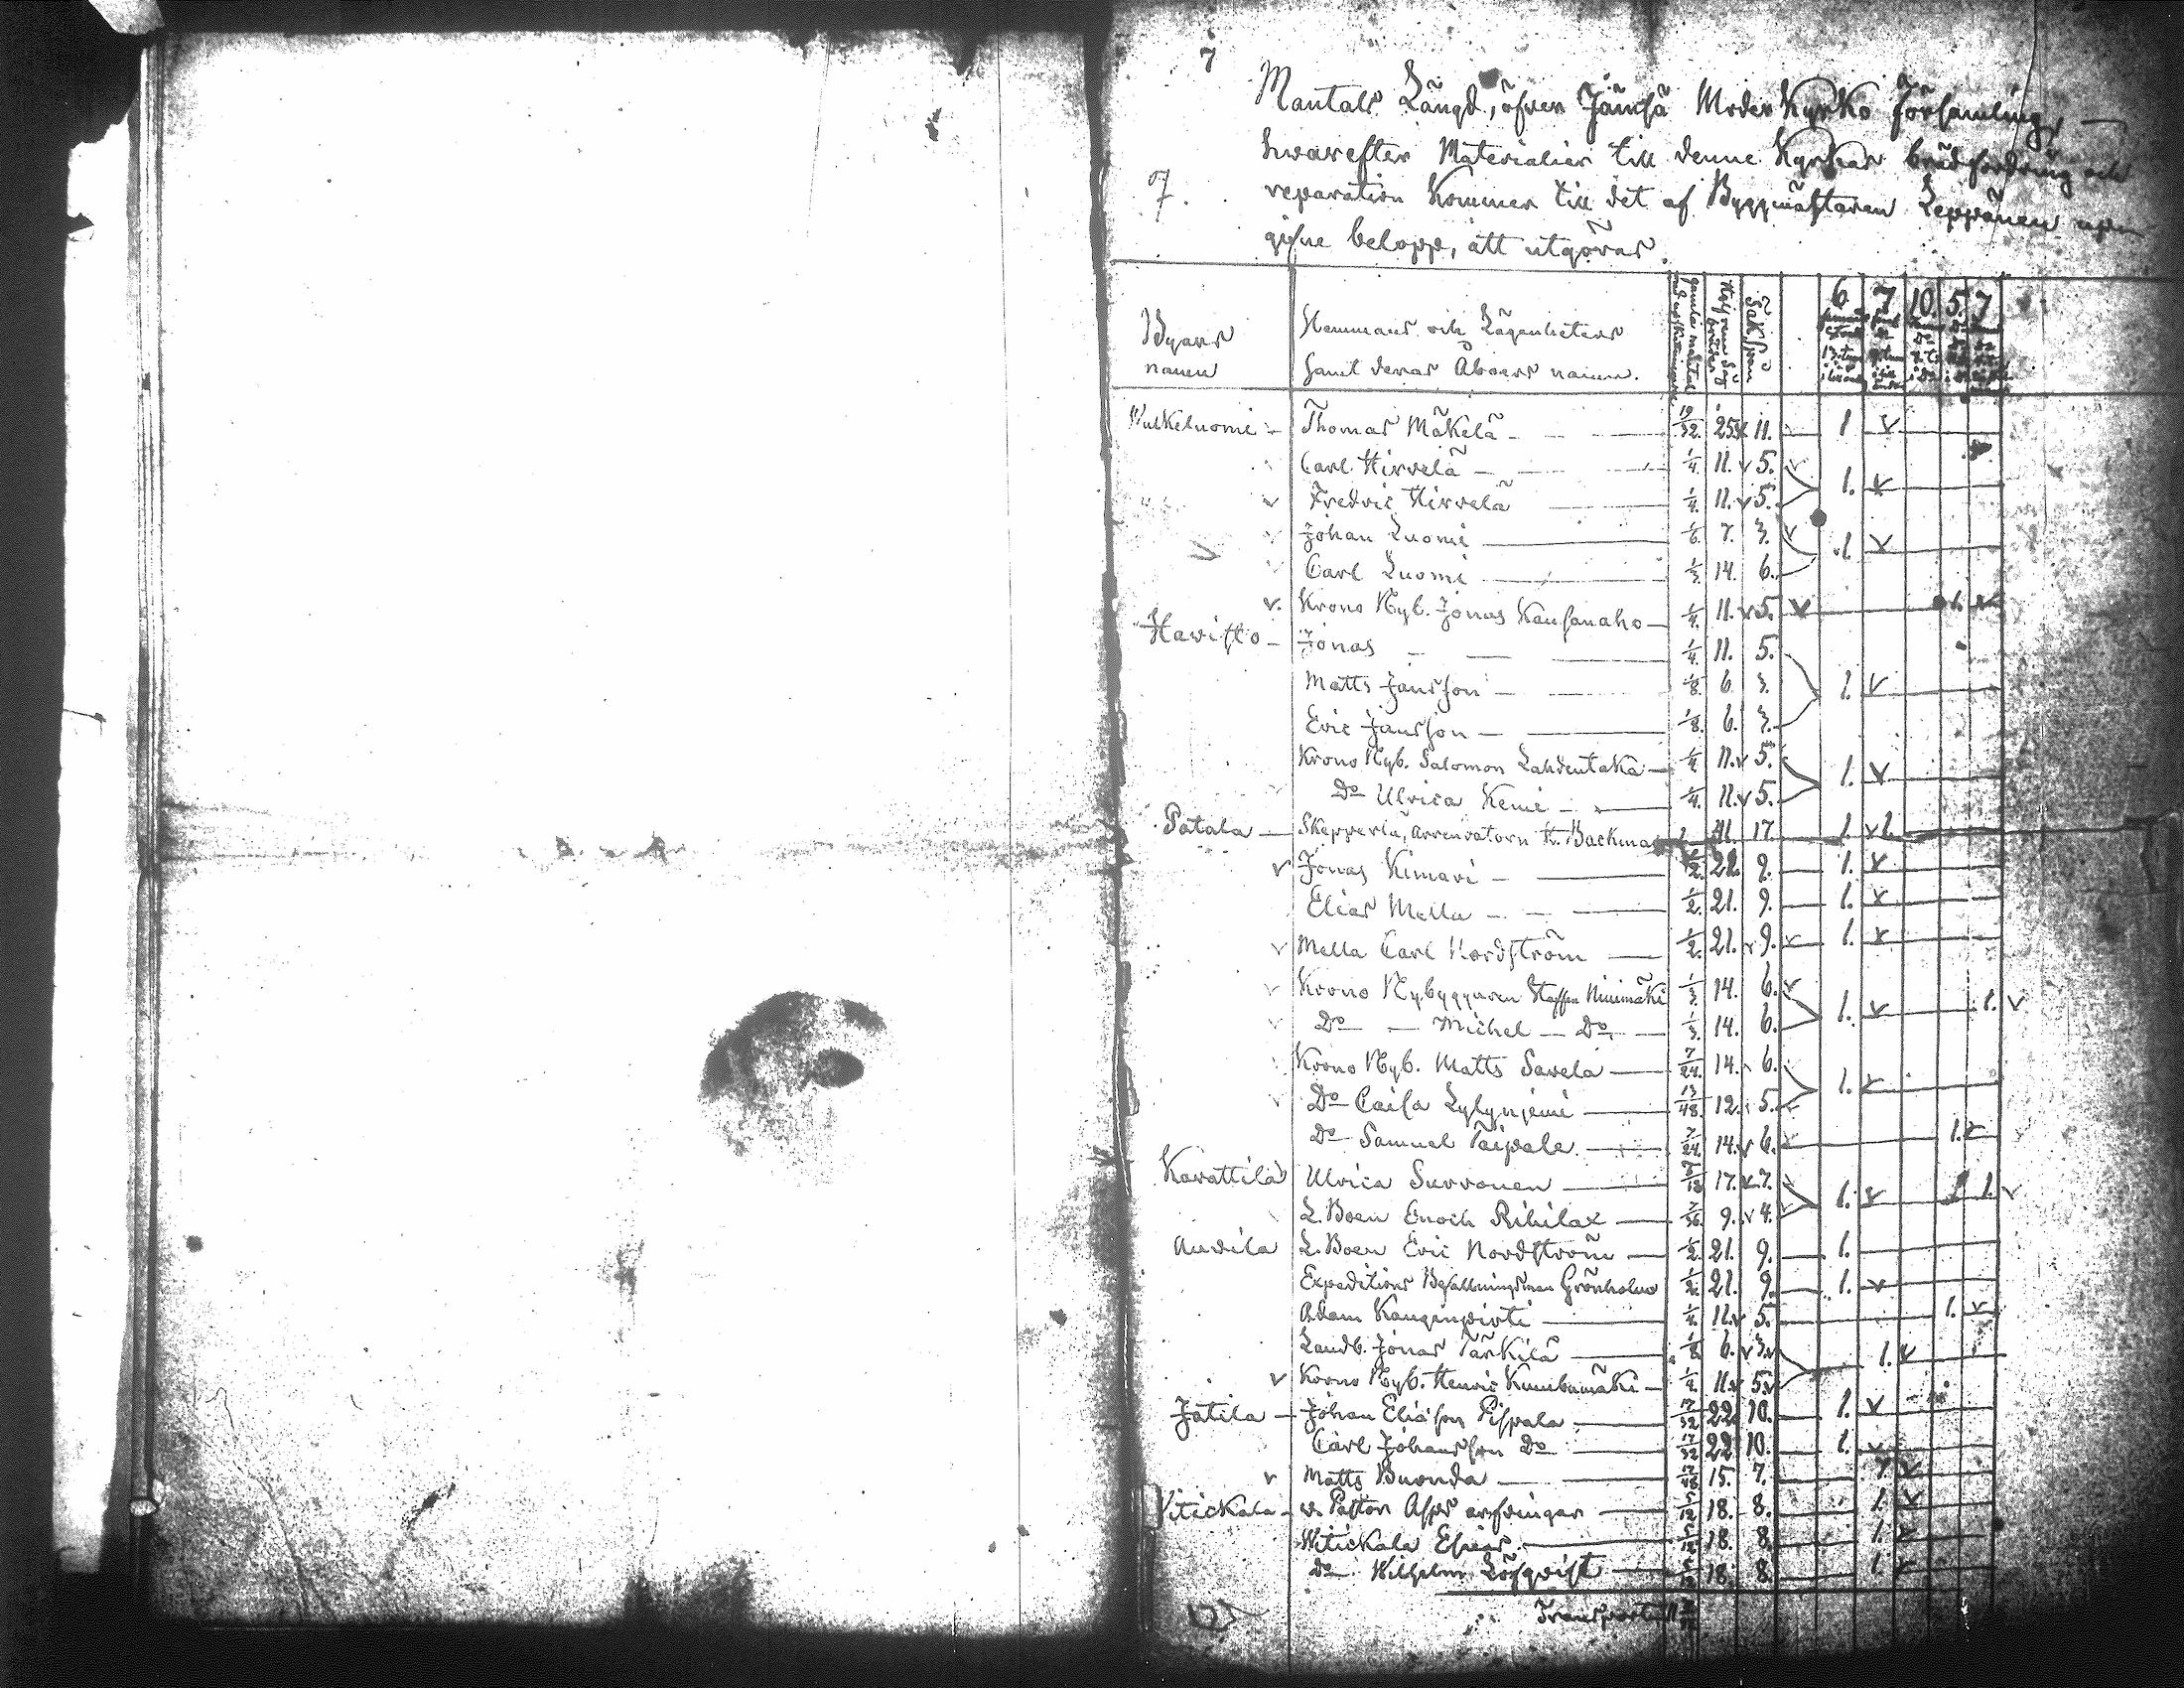 7
Mantals Längd, öfver Jämsä Moder Kyrko Församling,
hvarefter Materialier till denne Kyrkas brädfordring och
7.
reparation kommer till det af Byggmästaren Leppänen upn
gifne belopp, att utgöras.
Byars namn
Hemmans och Lägenheters samt deras Åboers namn.
6 7 10. 5. 7
Thomas Mäkelä 19/32. 25 11. 1 v
Carl Hirvelä 1/4. 11. v 5. v
v Fredric Hirvelä 1/4. 11. v 5. 1. v
Johan Luomi 1/6. 7. 3. v
Carl Luomi 1/3. 14. 6. 1. v
v. Krono Nyb. Jonas Kausanaho 1/4. 11. v 5. v
Havisto Jonas 1/4. 11. 5.
Matts Jansson 1/8. 6 3. 1. v
Eric Jansson 1/8. 6. 3.
Krono Nyb. Salomon Lahdentaka 1/4. 11. v 5. 1. v
Do Ulrica Kemi 1/4. 11. v 5.
Patala Skepperlä, Arrendatorn H. Backman 41. 17 1. v 1.
v Jonas Kimari 1/2. 21. 9. 1. v
Elias Mella 1/2. 21. 9. 1. v
v Mella Carl Nordström 1/2. 21. v 9. v 1. v
v Krono Nybyggaren Staffan Niinimäki 1/3. 14. 6. v
Do Michel Do 1/3. 14. 6. 1. v 1. v
Krono Nyb. Matts Savela 7/24. 14. 6.
Do Caisa Lylynjemi 13/48. 12. 5. 1. v
Do Samuel Taipale 7/24. 14. v 6. v 1. v
Karattila Ulrica Surronen 17. v 7.
L. Boen Enoch Rihilax 9. v 4. 1. v 1. v
Auvila L. Boen Eric Nordström 1/2. 21. 9. 1.
Expeditions Befallningsman Grönholm 1/2. 21. 9. 1. v
Adam Kangenpirti 1/4. 11. v 5. 1. v
Landb. Jonas Tärkilä 1/8. 6. v 3. v 1. v
v Krono Nyb. Henric Kumbumäki 1/4. 11. v 5. v
Jatila Johan Eliasson Pispala 17/32 22 10. 1. v
Carl Johansson Do 17/32 22 10. 1. v
v Matts Buonda 17/48 15. 7. v
Vitickala v. Pastor Asps arfvingar 5/12 18. 8. 1. v
Witickala Esaias 5/12 18. 8. 1. v
Do Wilhelm Löfqvist 5/12 18. 8. 1. v
Transport